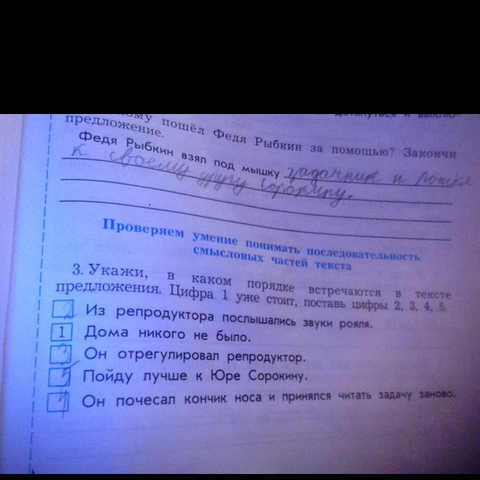 дотянуться и выклю-
кому пошёл Федя Рыбкин за помощью? Закончи
предложение.
Федя Рыбкин взял под мышку задачник и пошёл
к своему другу Сорокину.
Проверяем умение понимать последовательность
смысловых частей текста
3. Укажи, в каком порядке встречаются в тексте
предложения. Цифра 1 уже стоит, поставь цифры 2, 3, 4, 5.
Из репродуктора послышались звуки рояля.
1 Дома никого не было.
Он отрегулировал репродуктор.
Пойду лучше к Юре Сорокину.
Он почесал кончик носа и принялся читать задачу заново.